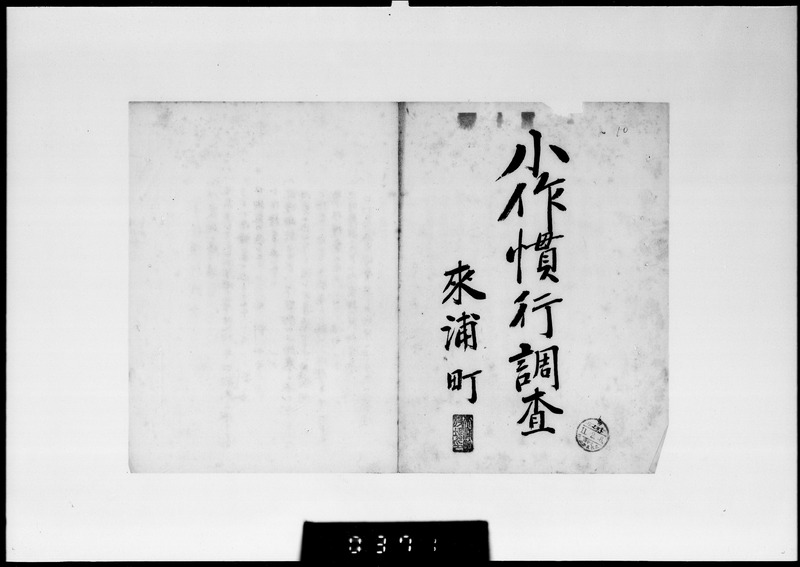 10
小作慣行調査
來浦町
0371